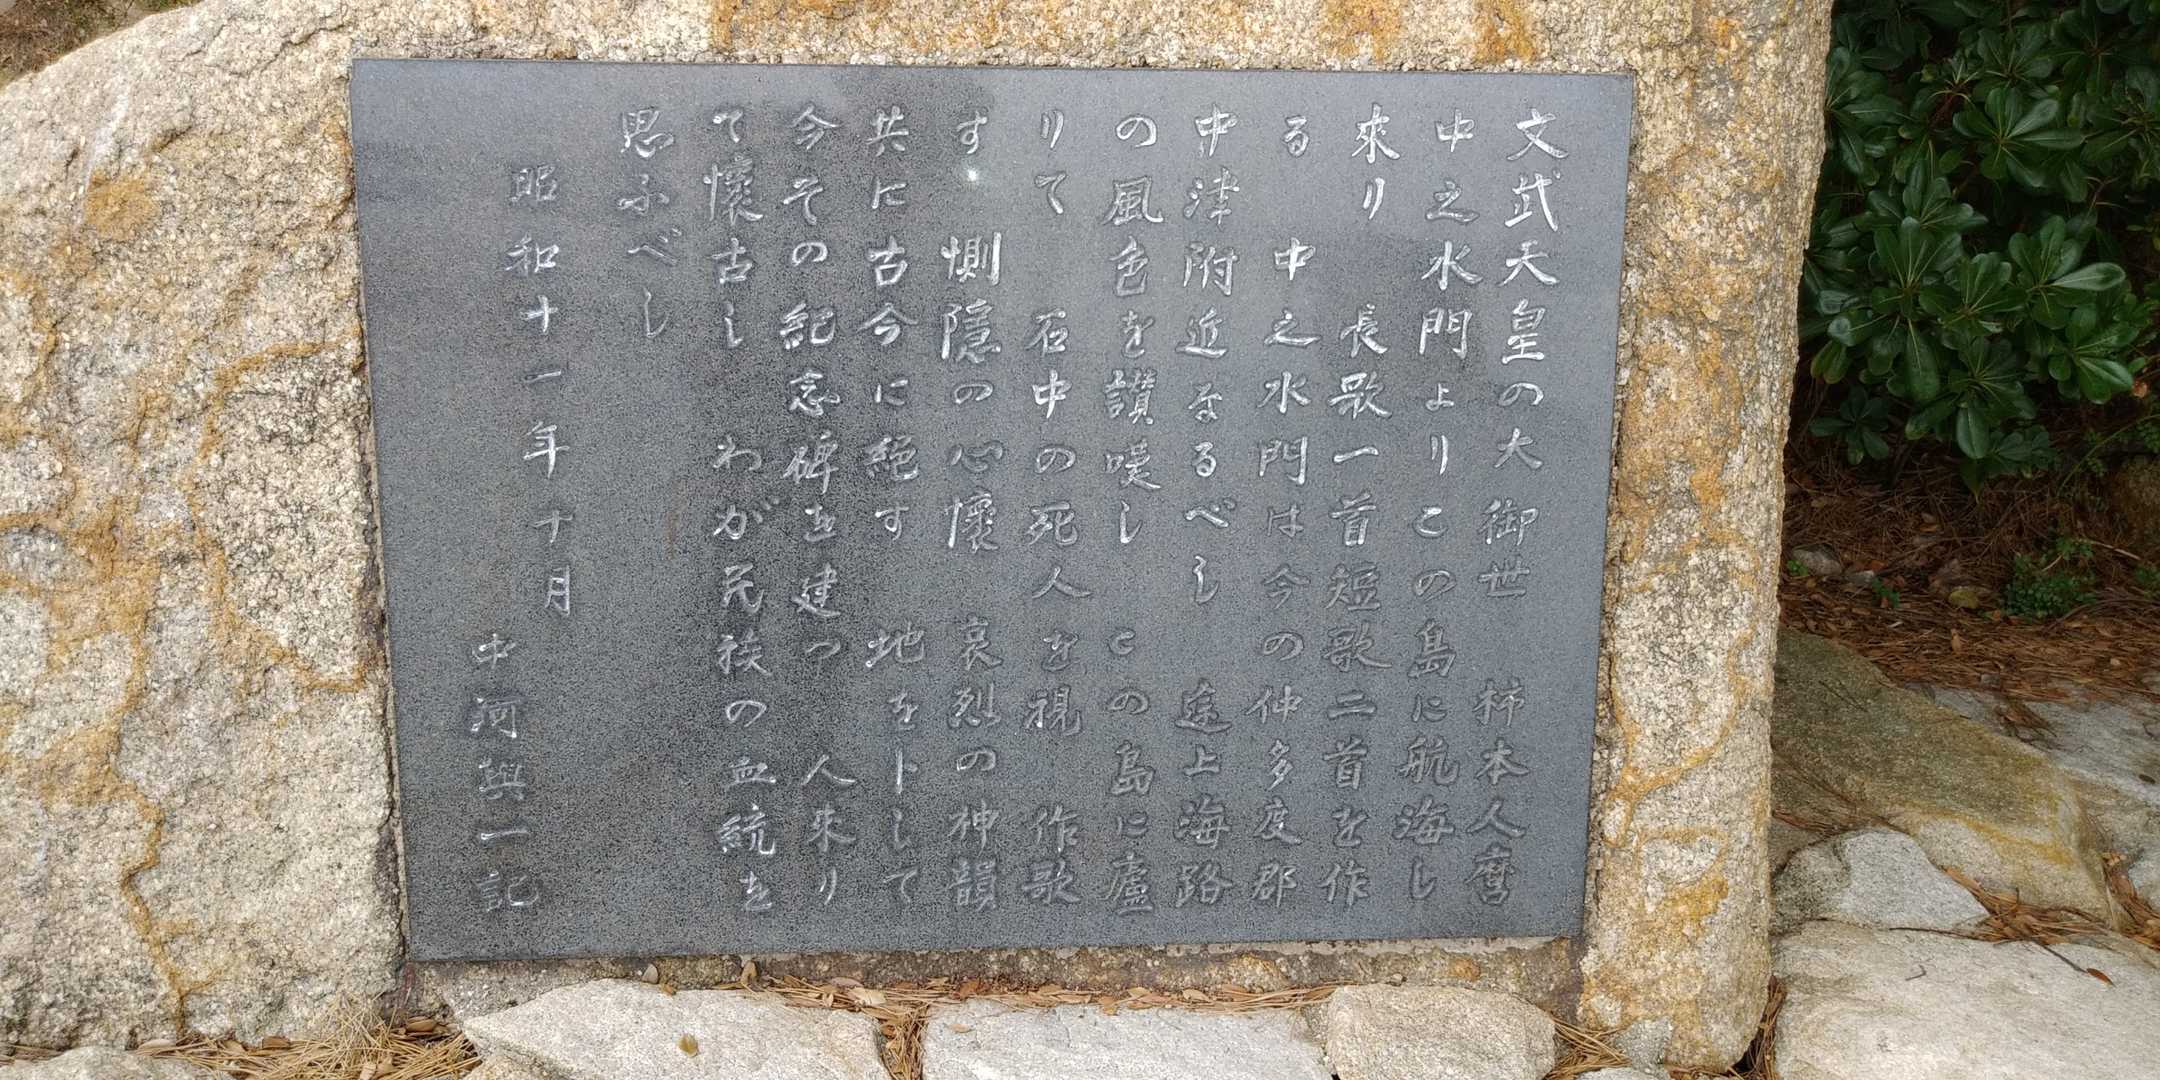 文武天皇の大御世 柿本人麿
中之水門よりこの島に航海し
來り 長歌一首短歌二首を作
る 中之水門は今の仲多度郡
中津附近なるべし 途上海路
の風色を讃嘆し この島に廬
りて 石中の死人を視 作歌
す 惻隠の心懐 哀烈の神韻
共に古今に絶す 地を卜して
今その紀念碑を建つ 人来り
て懷古し わが民族の血統を
思ふべし
昭和十一年十月
中河與一記